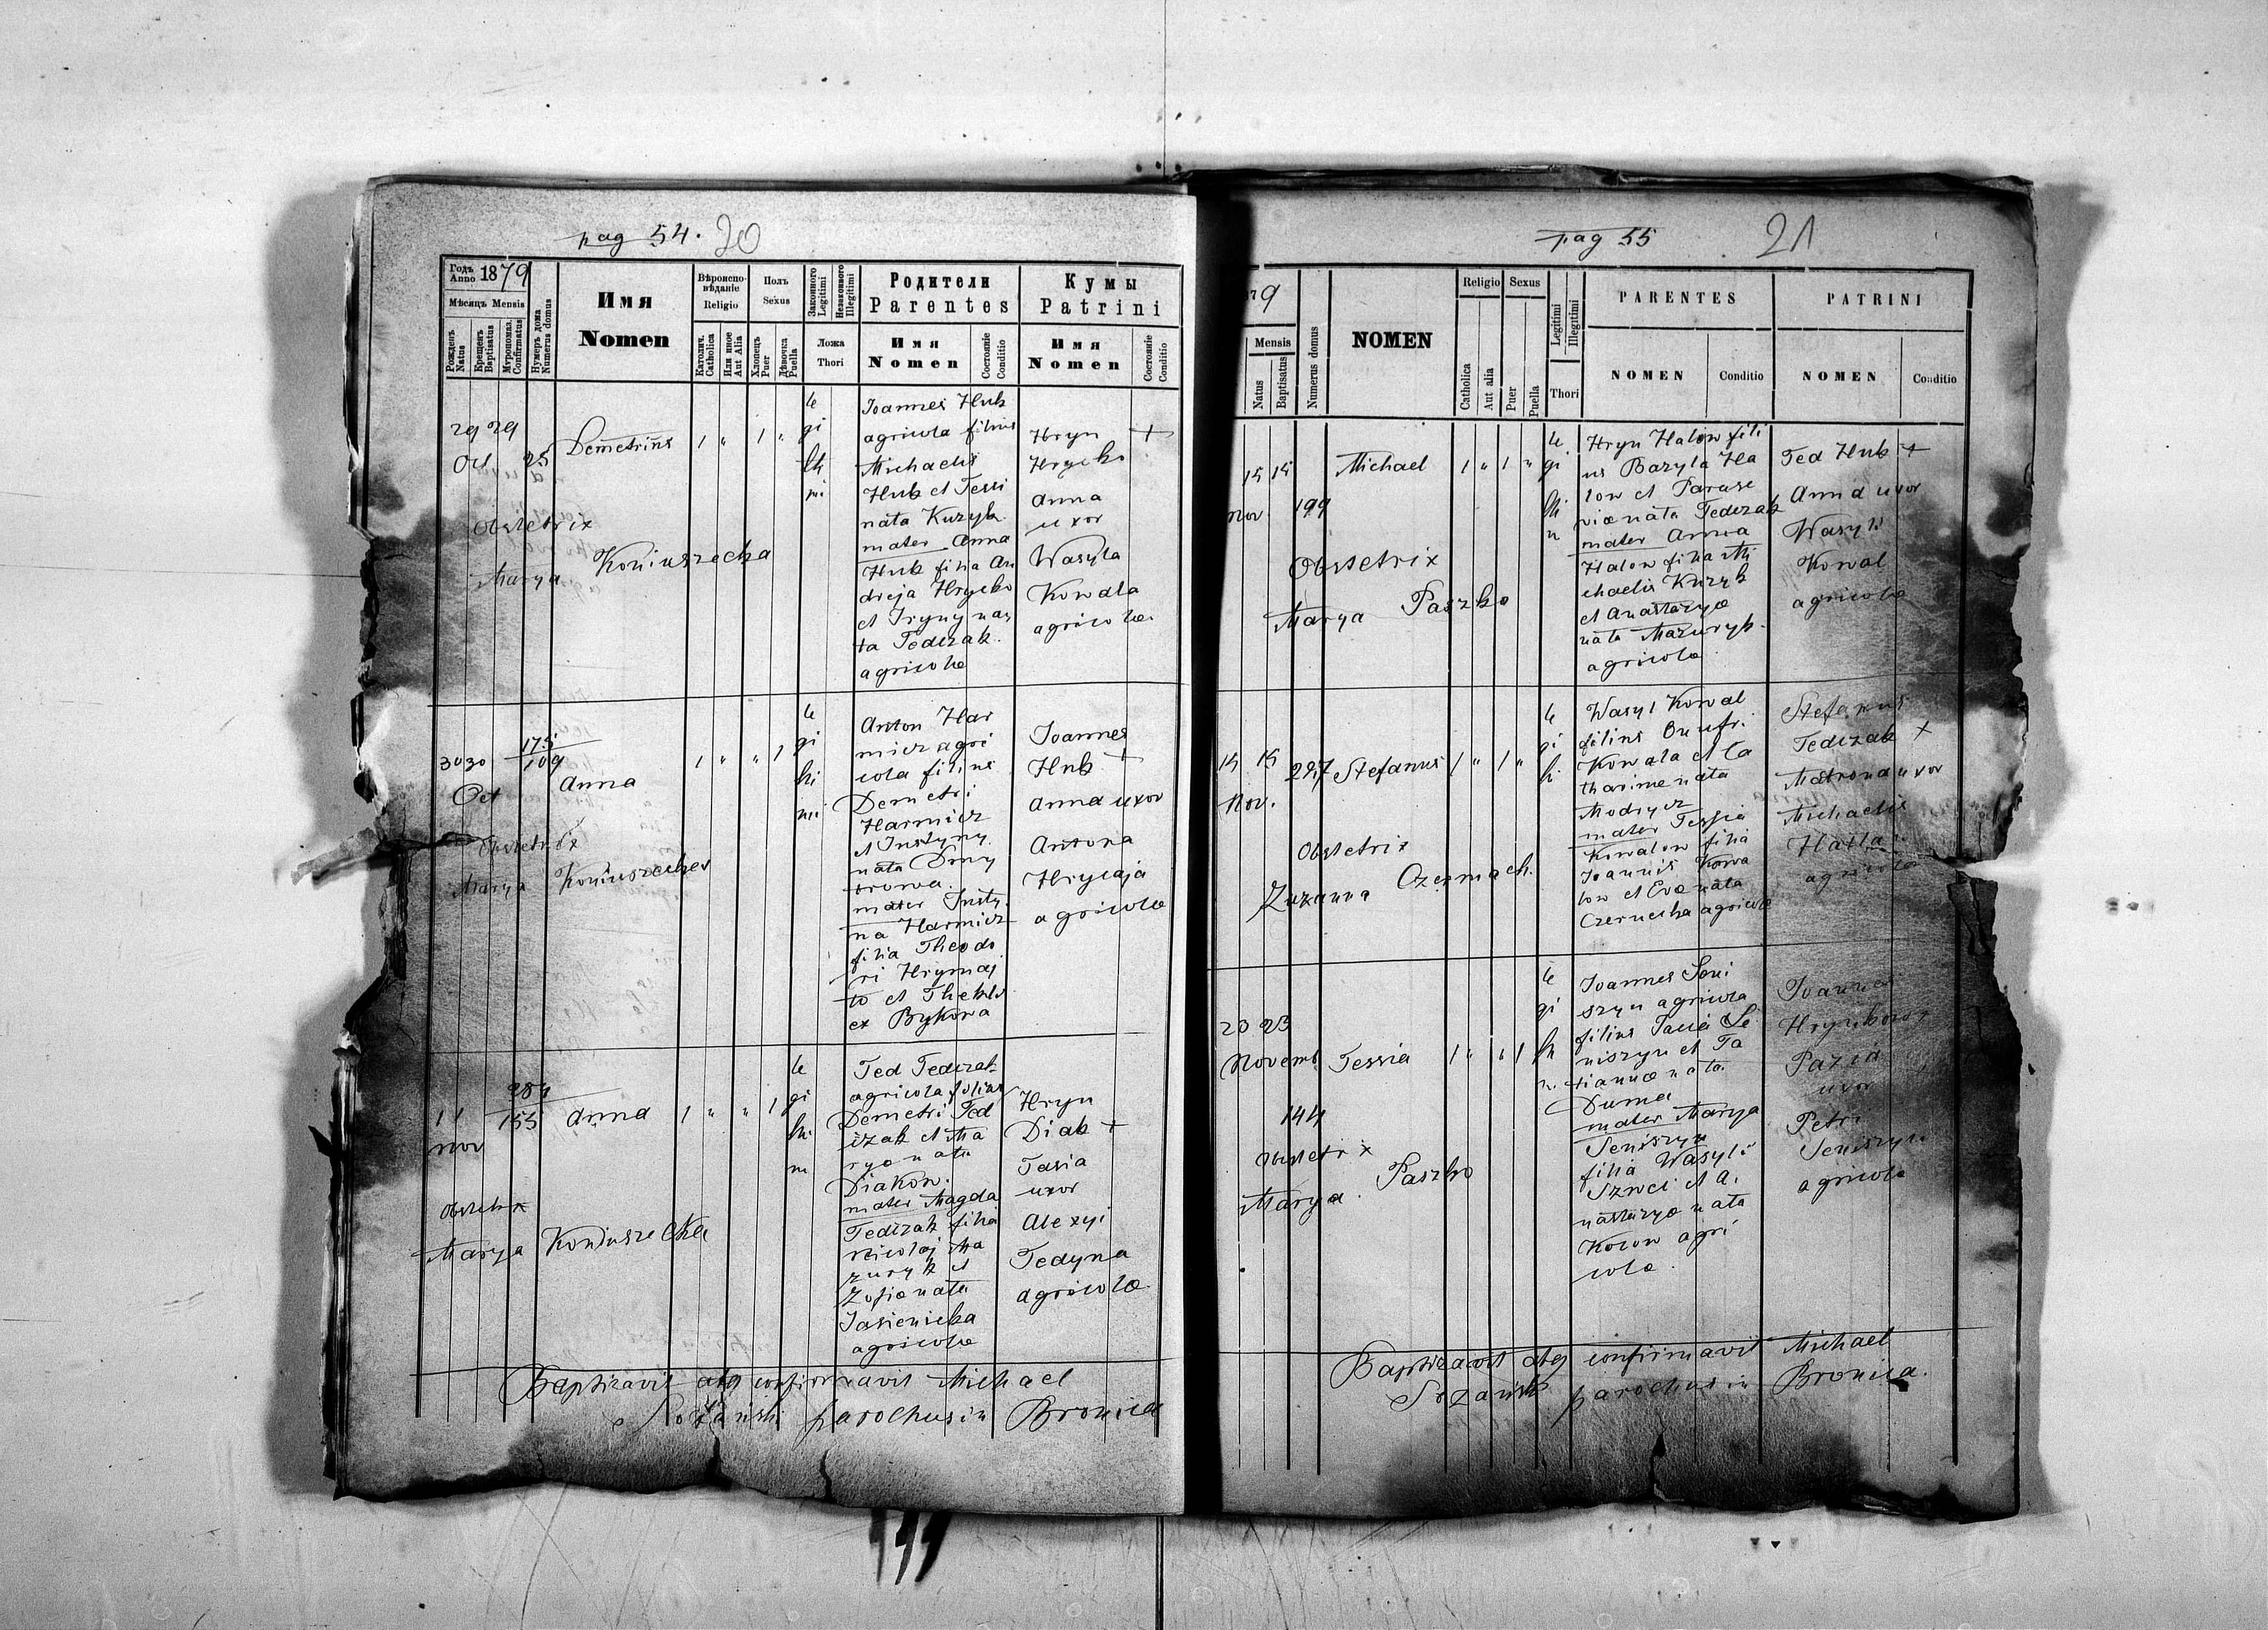 pag 54. 20
Годъ Anno 1879
Мѣсяцъ Mensis
Рожденъ Natus
Крещенъ Baptisatus
Мѵропомаз. Confirmatus
Нумеръ дома Numerus domus
Имя
Nomen
Вѣроиспо-
вѣданіе
Religio
Католич. Catholica
Или иное Aut Alia
Полъ
Sexus
Хлопецъ Puer
Дѣвочка Puella
Законного Legitimi
Незаконного Illegitimi
Ложа
Thori
Родители
Parentes
Имя
Nomen
Состояніе Conditio
Кумы
Patrini
Имя
Nomen
Состояніе Conditio
29 29
Oct 25
Demetrius
1 " 1 "
le
gi
thi
mi
Joannes Hub
agricola filius
Michaelis
Hub et Tessi
nata Kuzyk
mater Anna
Hub filia An
dreja Hrycko
et Iryny na
ta Fedczak
agricolae
Hryn +
Hrycko
Anna
uxor
Wasyla
Kowala
agricolae
Obstetrix
Marya Koniuszecka
30 30
Oct
175
109
Anna
1 " " 1
le
gi
thi
mi
Anton Har
micz agri
cola filius
Demetri
Harmicz
et Justyny
nata Dmy
trowa
mater Justy
na Harmicz
filia Theodo
ri Hrymaj
to et Thekla
ex Bykowa
Joannes
Hub +
Anna uxor
Antona
Hrycaja
agricolae
Obstetrix
Marya Koniuszecka
1 1
nov
284
155
Anna
1 " " 1
le
gi
thi
m
Fed Fedczak
agricola filius
Demetri Fed
czak et Ma
rya nata
Diakow.
mater Magda
Fedczak filia
Nicolaj Ma
zuryk et
Zofia nata
Jasienicka
agricolae
Hryn
Diak +
Tasia
uxor
Alexyi
Fedyna
agricolae
Obstetrix
Marya Koniuszecka
Baptizavit atq confirmavit Michael
Sozański parochus in Bronica
pag 55 21
79
Mensis
Natus
Baptisatus
Numerus domus
NOMEN
Religio
Catholica
Aut alia
Sexus
Puer
Puella
Legitimi
Illegitimi
Thori
PARENTES
NOMEN
Conditio
PATRINI
NOMEN
Conditio
15 15
nov. 199
Michael
1 " 1 "
le
gi
thi
Hryn Halow fili
us Bazyla Ha
low et Parasc
via nata Fedczak
mater Anna
Halow filia Mi
chaelis Kuzyk
et Anastazya
nata Mazuryk
agricolae
Fed Hub +
Anna uxor
Wasyli
Kowal
agricolae
Obstetrix
Marya Paszko
15 15
Nov.
Stefanus
1 " 1 "
le
gi
thi
Wasyl Kowal
filius Onufri
Kowala et Ca
tharina nata
Modrycz
mater Tessia
Kowalow filia
Joannis Kowa
low et Eva nata
Czernecka agricolae
Stefanus
Fedczak +
Matrona uxor
Michaelis
agricolae
Obstetrix
Zuzanna Czermach.
20 23
Novemb
144
Tessia
1 " " 1
le
gi
thi
Joannes Seni
szyn agricola
filius Se
niszyn et Ta
tianna nata
Duma
mater Marya
Seniszyn
filia Wasyli
et A
nastazya nata
agri
colae.
Joannes
Pazia
uxor
Petri
Seniszyn
agricolae
Obstetrix
Marya Paszko
Baptizavit atq confirmavit Michael
Sozański parochus in Bronica.